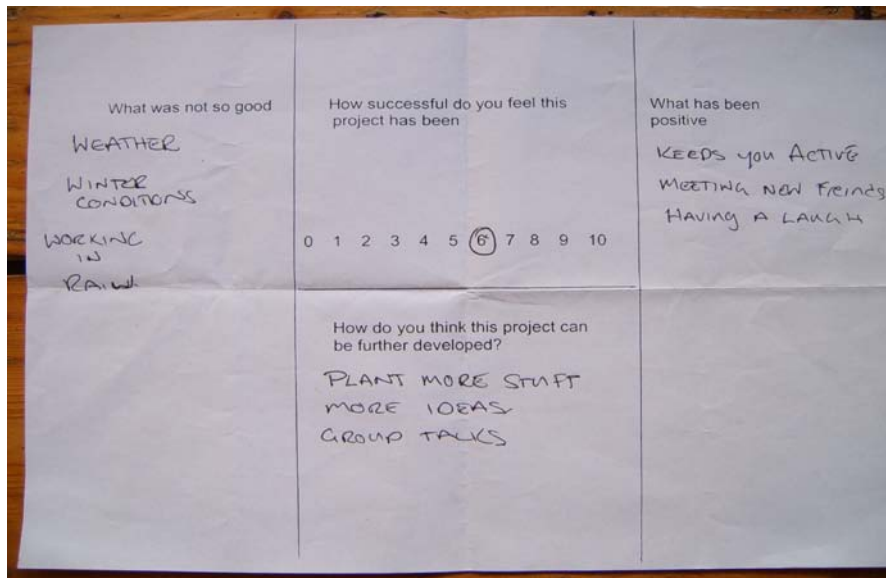 What was not so good
WEATHER
WINTER
CONDITIONS
WORKING
IN
RAIN
How successful do you feel this
project has been
0 1 2 3 4 5 6 7 8 9 10
How do you think this project can
be further developed?
PLANT MORE STUFF
MORE IDEAS
GROUP TALKS
What has been
positive
KEEPS you ACTIVE
MEETING NEW Freinds
HAVING A LAUGH